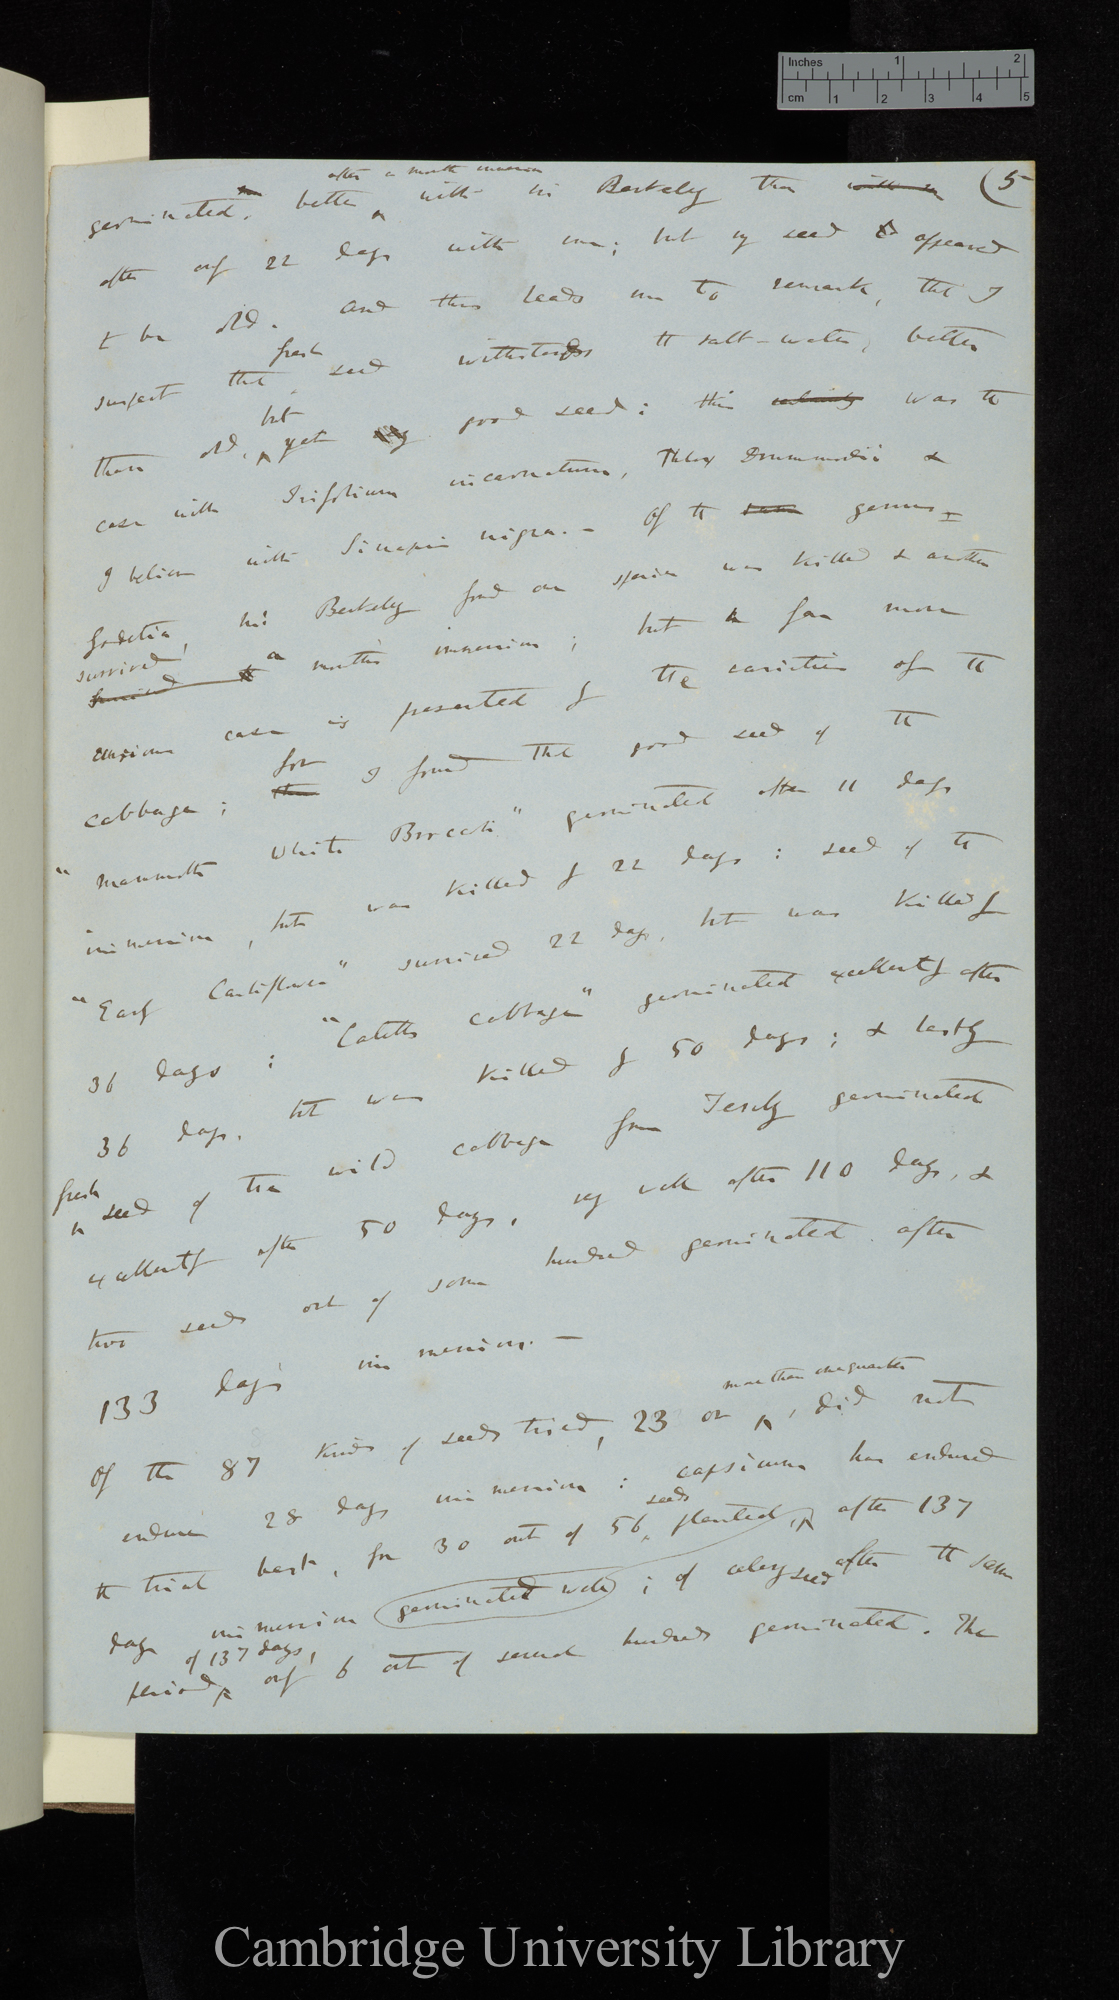 Inches 1 2
cm 1 2 3 4 5
(5
after a month immersion
germinated better with Mr Berkeley than with me
after only 22 days with me; but my seed appeared
to be old. And this leads me to remark, that I
fresh
suspect that seed withstands the salt-water, better
but
than old, yet good seed: this certainly was the
case with Trifolium incarnatum, Phlox Drummondii &
I believe with Sinapis nigra. — Of the same genus
Godetia, Mr Berkeley found one species was killed & another
survived
survived a month's immersion; but a far more
curious case is presented by the varieties of the
for
cabbage; thus I found that good seed of the
"Mammoth White Broccoli" germinated after 11 days
immersion, but was killed by 22 days: seed of the
"Early Cauliflower" survived 22 days, but was killed by
36 days: "Catells cabbage" germinated excellently after
36 days, but was killed by 50 days; & lastly
fresh
seed of the wild cabbage from Tenby germinated
excellently after 50 days, very well after 110 days, &
two seeds out of some hundred germinated after
133 days immersion. —
more than one quarter
Of the 87 kinds of seeds tried, 23 or , did not
endure 28 days immersion: capsicum has endured
seeds
the trial best, for 30 out of 56 planted, after 137
days immersion germinated well; of celery seed after the same
of 137 days,
period only 6 out of several hundreds germinated. The
Cambridge University Library